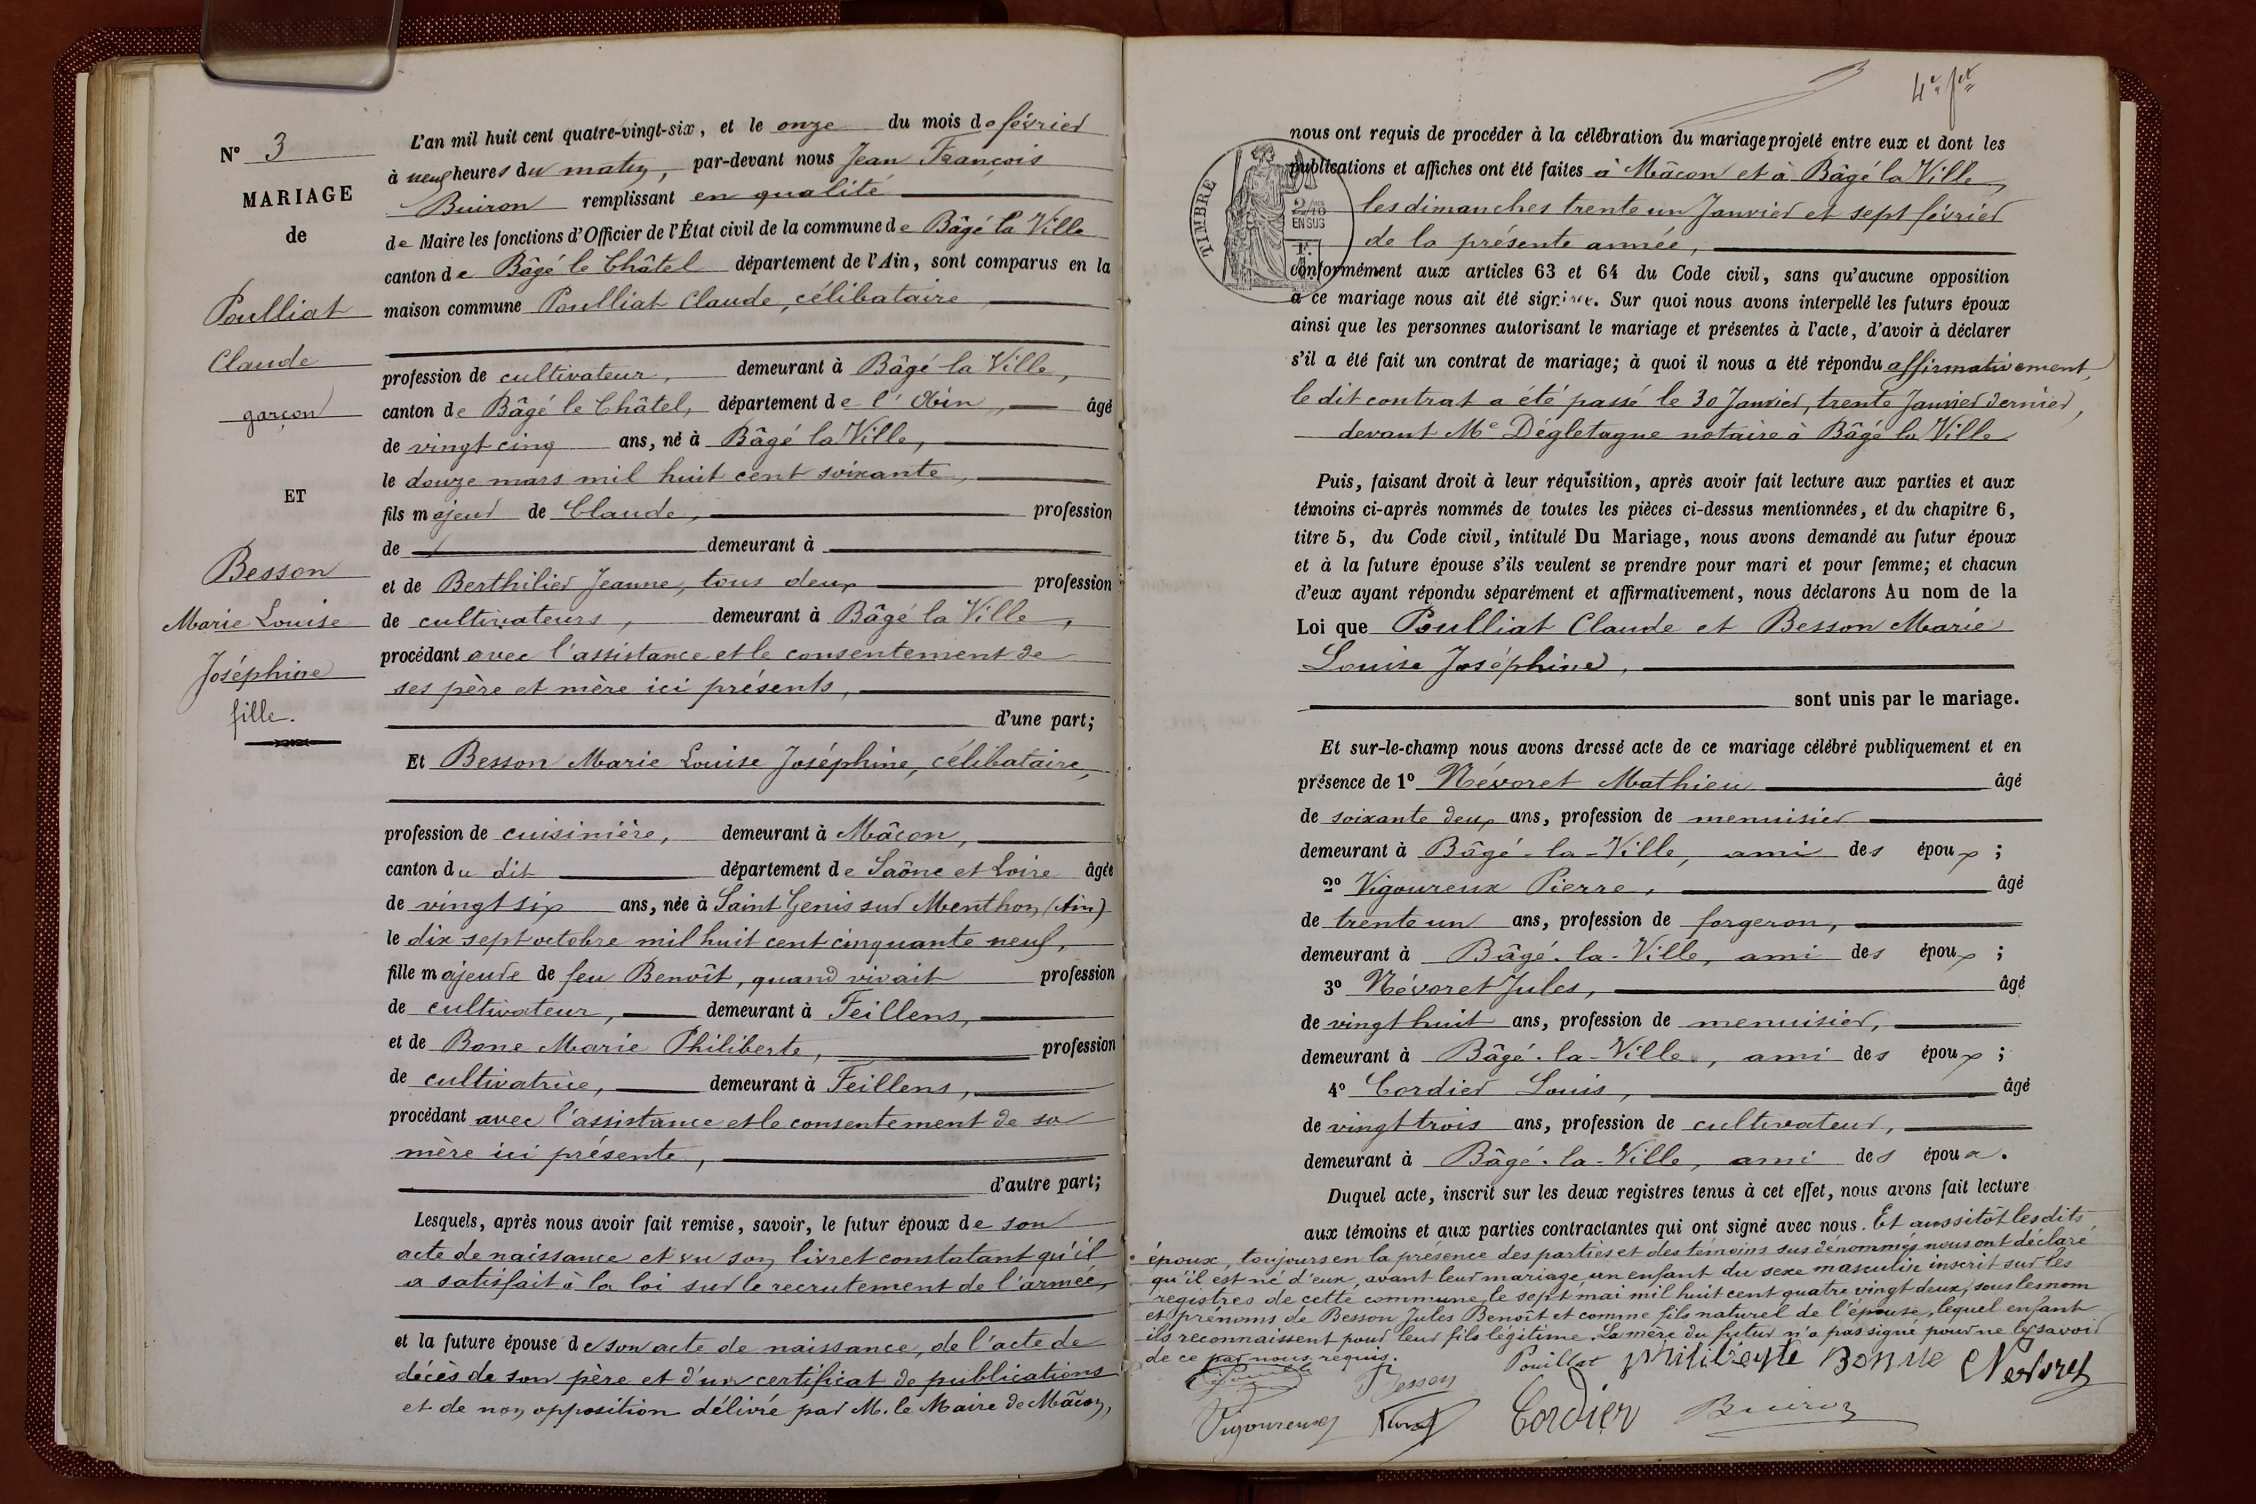 N° 3
MARIAGE
de
Poulliat
Claude
garçon
ET
Besson
Marie Louise
Joséphine
fille.
L'an mil huit cent quatre-vingt-six, et le onze du mois de février
à neuf heures du matin, par-devant nous Jean François
Buiron remplissant en qualité
de Maire les fonctions d'Officier de l'État civil de la commune de Bâgé la Ville
canton de Bâgé le Châtel département de l'Ain, sont comparus en la
maison commune Poulliat Claude, célibataire
profession de cultivateur, demeurant à Bâgé la Ville,
canton de Bâgé le Châtel, département de l'Ain, âgé
de vingt cinq ans, né à Bâgé la Ville,
le douze mars mil huit cent soixante,
fils majeur de Claude, profession
de demeurant à
et de Berthilier Jeanne, tous deux profession
de cultivateurs, demeurant à Bâgé la Ville,
procédant avec l'assistance et le consentement de
ses père et mère ici présents,
d'une part;
Et Besson Marie Louise Joséphine, célibataire,
profession de cuisinière, demeurant à Mâcon,
canton du dit département de Saône et Loire âgée
de vingt six ans, née à Saint Genis sur Menthon (Ain)
le dix sept octobre mil huit cent cinquante neuf,
fille majeure de feu Benoît, quand vivait profession
de cultivateur, demeurant à Feillens,
et de Bone Marie Philiberte, profession
de cultivatrice, demeurant à Feillens,
procédant avec l'assistance et le consentement de sa
mère ici présente,
d'autre part;
Lesquels, après nous avoir fait remise, savoir, le futur époux de son
acte de naissance et vu son livret constatant qu'il
a satisfait à la loi sur le recrutement de l'armée,
et la future épouse de son acte de naissance, de l'acte de
décès de son père et d'un certificat de publications
et de non opposition délivré par M. le Maire de Mâcon,
4e fet
TIMBRE
2/10
EN SUS
nous ont requis de procéder à la célébration du mariage projeté entre eux et dont les
publications et affiches ont été faites à Mâcon et à Bâgé la Ville,
les dimanches trente un Janvier et sept février
de la présente année,
conformément aux articles 63 et 64 du Code civil, sans qu'aucune opposition
à ce mariage nous ait été signifiée. Sur quoi nous avons interpellé les futurs époux
ainsi que les personnes autorisant le mariage et présentes à l'acte, d'avoir à déclarer
s'il a été fait un contrat de mariage; à quoi il nous a été répondu affirmativement,
le dit contrat a été passé le 30 Janvier, trente Janvier dernier,
devant Me Dégletagne notaire à Bâgé la Ville
Puis, faisant droit à leur réquisition, après avoir fait lecture aux parties et aux
témoins ci-après nommés de toutes les pièces ci-dessus mentionnées, et du chapitre 6,
titre 5, du Code civil, intitulé Du Mariage, nous avons demandé au futur époux
et à la future épouse s'ils veulent se prendre pour mari et pour femme; et chacun
d'eux ayant répondu séparément et affirmativement, nous déclarons Au nom de la
Loi que Poulliat Claude et Besson Marie
Louise Joséphine,
sont unis par le mariage.
Et sur-le-champ nous avons dressé acte de ce mariage célébré publiquement et en
présence de 1° Névoret Mathieu âgé
de soixante deux ans, profession de menuisier
demeurant à Bâgé-la-Ville, ami des époux;
2° Vigoureux Pierre, âgé
de trente un ans, profession de forgeron,
demeurant à Bâgé-la-Ville, ami des époux;
3° Névoret Jules, âgé
de vingt huit ans, profession de menuisier,
demeurant à Bâgé-la-Ville, ami des époux;
4° Cordier Louis, âgé
de vingt trois ans, profession de cultivateur,
demeurant à Bâgé-la-Ville, ami des époux.
Duquel acte, inscrit sur les deux registres tenus à cet effet, nous avons fait lecture
aux témoins et aux parties contractantes qui ont signé avec nous. Et aussitôt les dits
époux, toujours en la présence des parties et des témoins sus dénommés nous ont déclaré
qu'il est né d'eux, avant leur mariage un enfant du sexe masculin inscrit sur les
registres de cette commune, le sept mai mil huit cent quatre vingt deux, sous les nom
et prénoms de Besson Jules Benoît et comme fils naturel de l'épouse, lequel enfant
ils reconnaissent pour leur fils légitime. La mère du futur n'a pas signé pour ne le savoir
de ce par nous requis.
Besson Pouillat philiberte Bonne Nevoret
Vigoureux Cordier Buiron